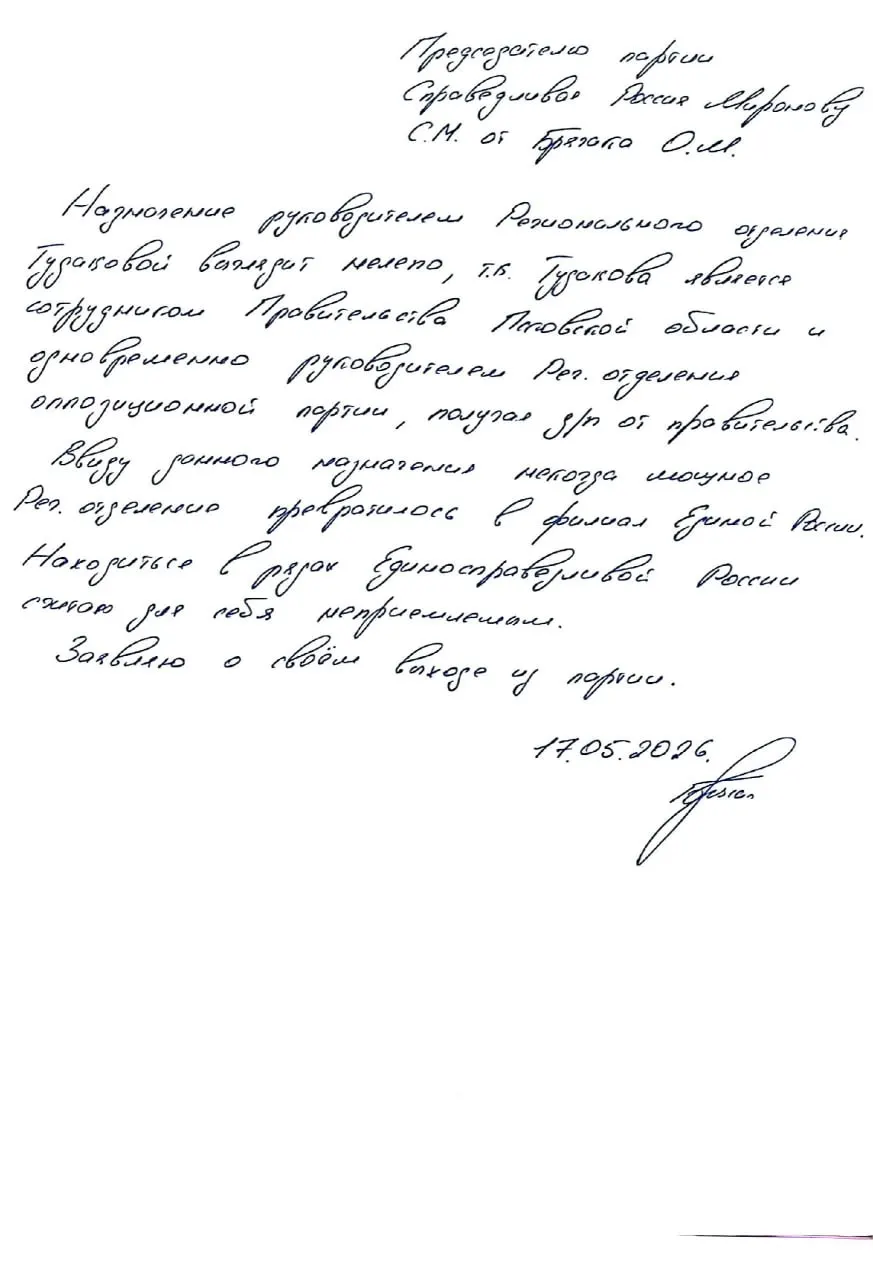 Председателю партии
Справедливая Россия Миронову
С.М. от Брячака О.М.
Назначение руководителем Регионального отделения
Гузаковой выглядит нелепо, т.к. Гузакова является
сотрудником Правительства Псковской области и
одновременно руководителем Рег. отделения
оппозиционной партии, получая з/п от правительства.
Ввиду данного назначения некогда мощное
Рег. отделение превратилось в филиал Единой России.
Находиться в рядах Единосправедливой России
считаю для себя неприемлемым.
Заявляю о своём выходе из партии.
17.05.2026.